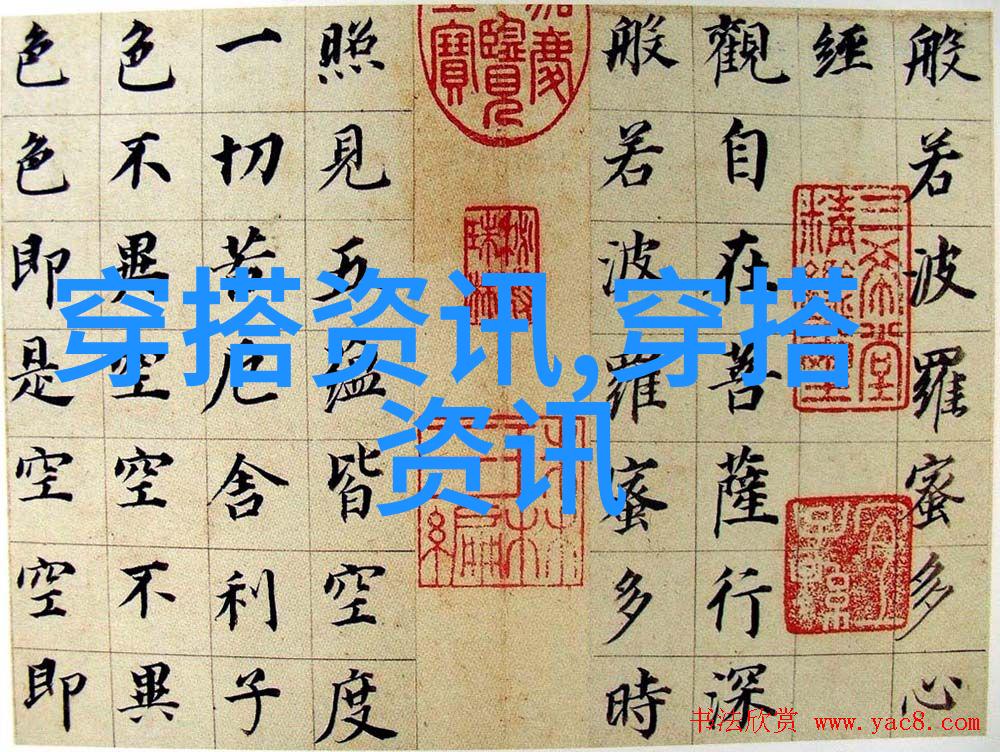 般若波羅蜜多心
經
觀自在菩薩行深
般若波羅蜜多時
照見五蘊皆空度
一切苦厄舍利子
色不異空空不異
色色即是空空即
三希堂精鑑璽
穿搭资讯,穿搭
资讯
书法欣赏 www.yac8.com